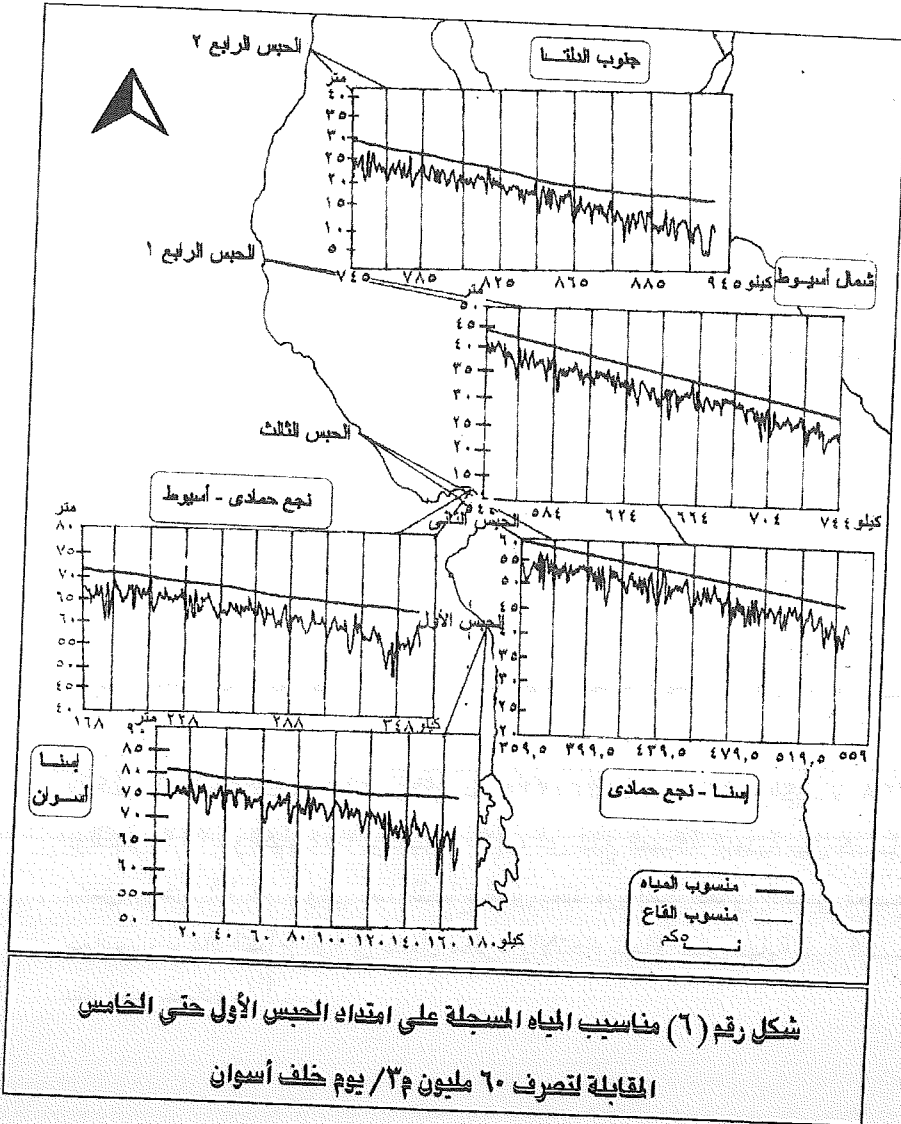 الحبس الرابع ٢
جنوب الدلتـــا
متر
٤٠
٣٥
٣٠
٢٥
٢٠
١٥
١٠
٥
٧٤٥ ٧٨٥ ٨٢٥ ٨٦٥ ٨٨٥ ٩٤٥ كيلو
الحبس الرابع ١
شمال أسيــوط
متر
٥٠
٤٥
٤٠
٣٥
٣٠
٢٥
٢٠
١٥
٥٨٤ ٦٢٤ ٦٦٤ ٧٠٤ ٧٤٤ كيلو
الحبس الثالث
نجع حمادى - أسيوط
متر
٨٠
٧٥
٧٠
٦٥
٦٠
٥٥
٥٠
٤٥
٤٠
١٦٨ ٢٢٨ ٢٨٨ ٣٤٨ كيلو
الحبس الثانى
٦٠
٥٥
٥٠
٤٥
٤٠
٣٥
٣٠
٢٥
٢٠
٣٥٩,٥ ٣٩٩,٥ ٤٣٩,٥ ٤٧٩,٥ ٥١٩,٥ ٥٥٩
إسنـا - نجع حمادى
الحبس الأول
إسنــا
أســوان
متر
٩٠
٨٥
٨٠
٧٥
٧٠
٦٥
٦٠
٥٥
٥٠
٢٠ ٤٠ ٦٠ ٨٠ ١٠٠ ١٢٠ ١٤٠ ١٦٠ ١٨٠ كيلو
منسوب المياه
منسوب القاع
شكل رقم (٦) مناسيب المياه المسجلة على امتداد الحبس الأول حتى الخامس
المقابلة لتصرف ٦٠ مليون م٣/ يوم خلف أسوان